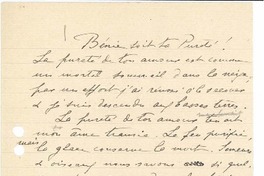 Bénie soit ta Pureté!
La pureté de ton amour est comme
un mortel sommeil dans la neige,
par un effort j'ai réussi à le secouer
& je suis descendu aux basses terres.
La pureté de ton amour tenait
mon âme transie. Le feu purifie
mais
la glace conserve la mort.
& nous savons si quel